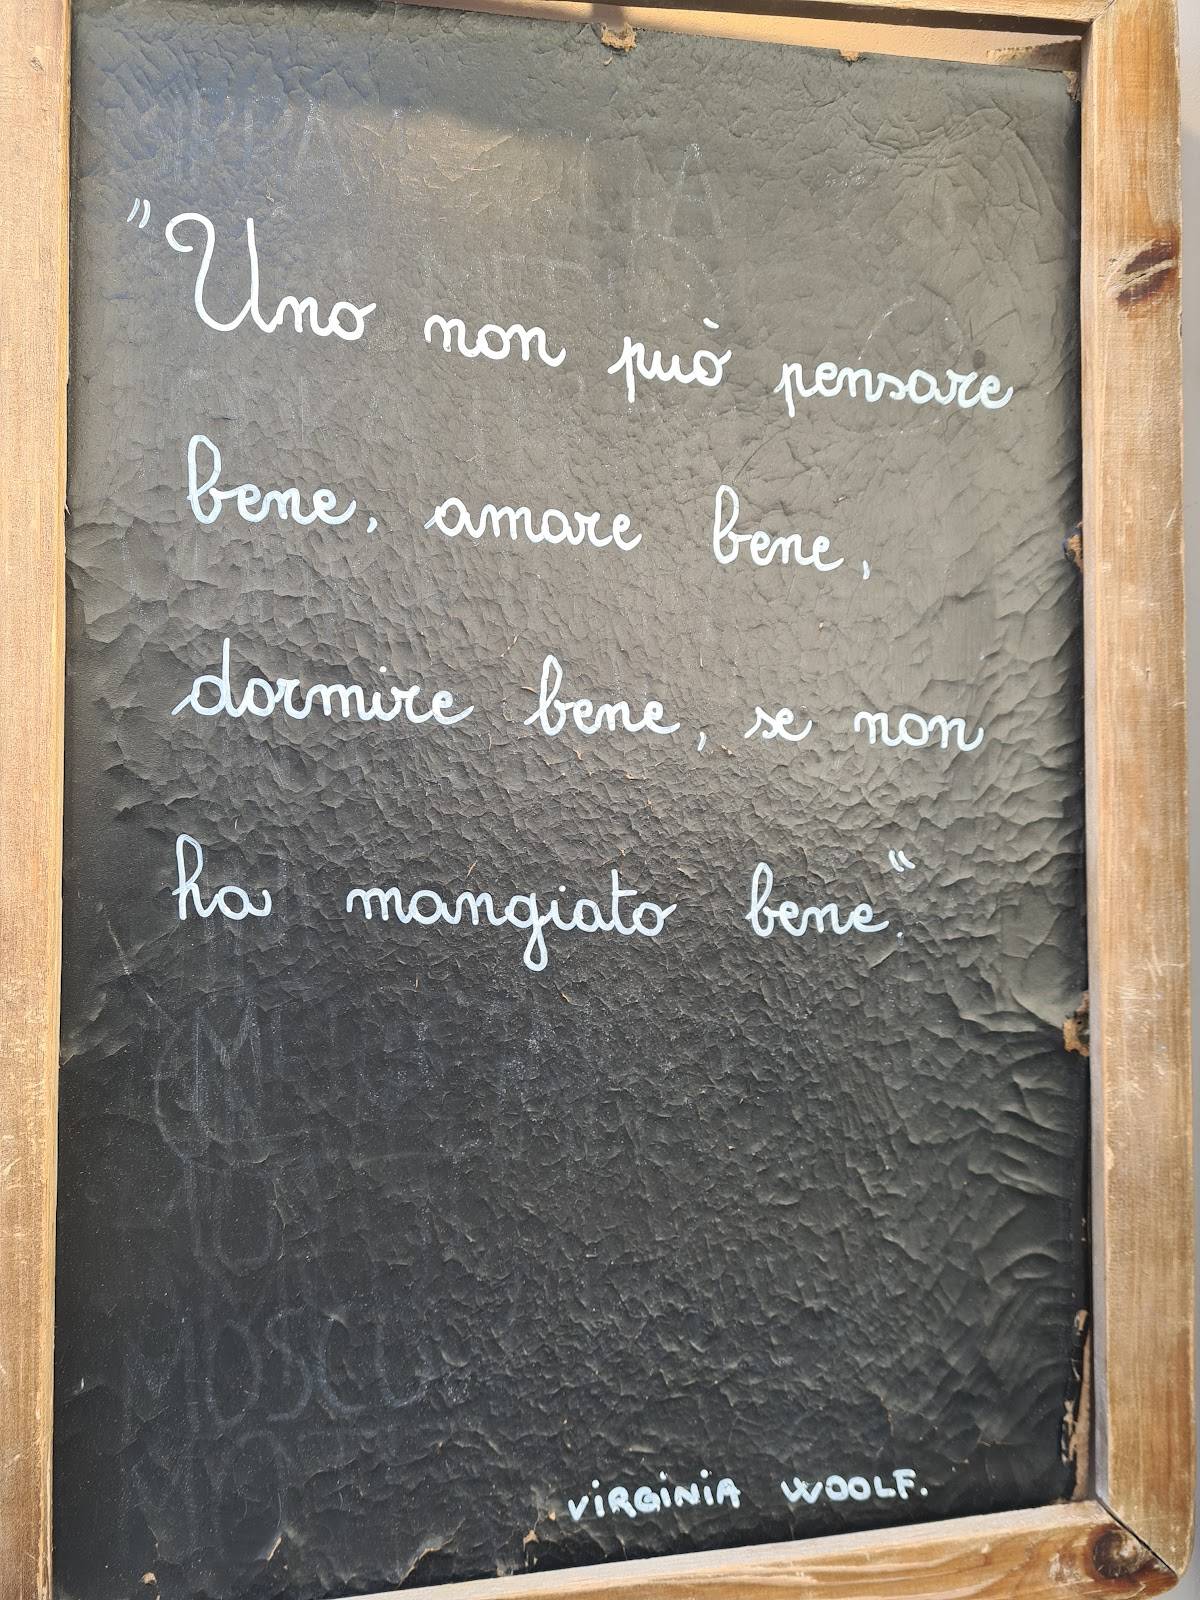 "Uno non può pensare
bene, amare bene,
dormire bene, se non
ha mangiato bene."
VIRGINIA WOOLF.